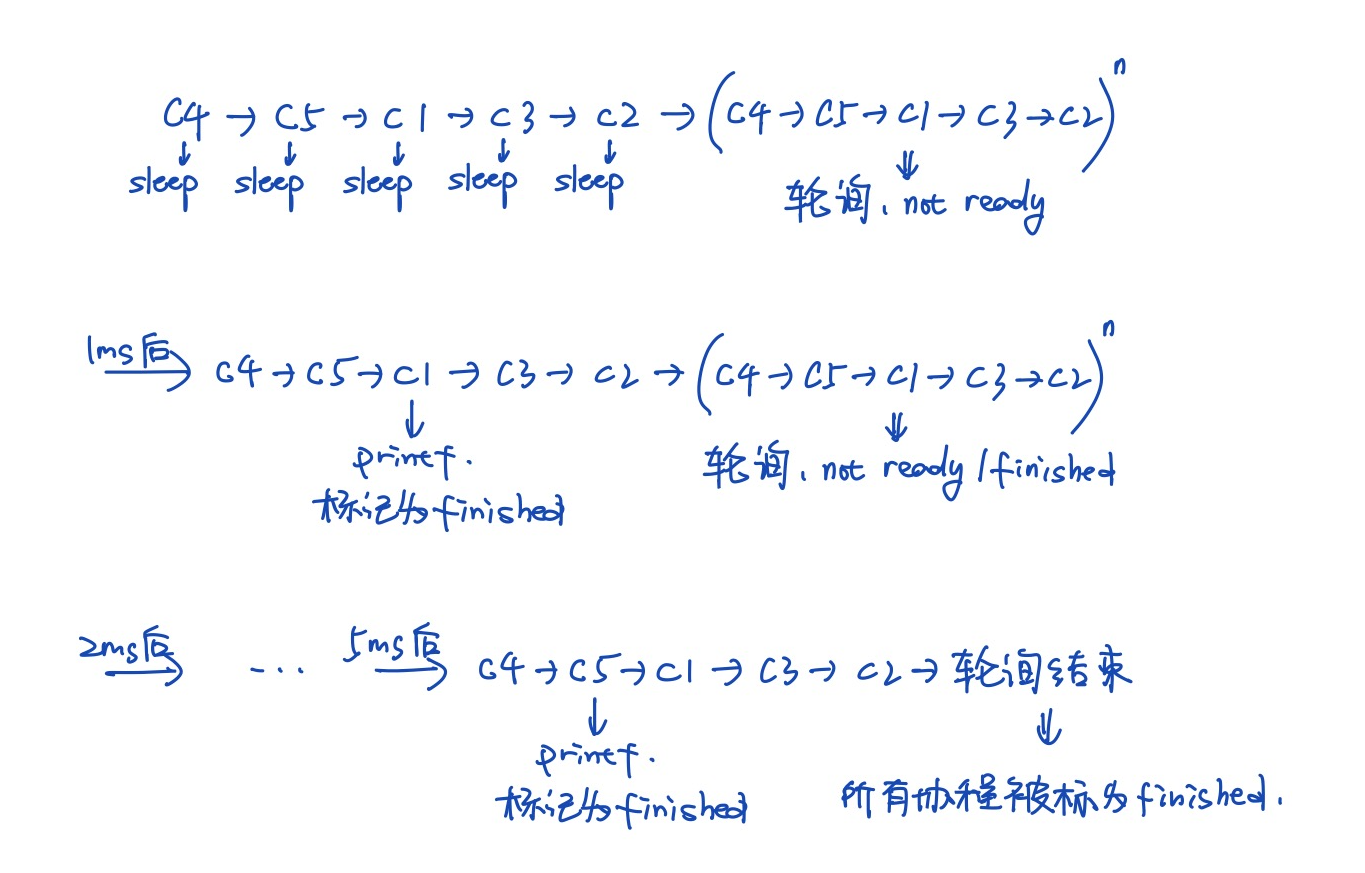 C4 → C5 → C1 → C3 → C2 → (C4 → C5 → C1 → C3 → C2)^n
↓ ↓ ↓ ↓ ↓
sleep sleep sleep sleep sleep
⇓
轮询, not ready
1ms后 C4 → C5 → C1 → C3 → C2 → (C4 → C5 → C1 → C3 → C2)^n
↓ ⇓
printf. 轮询, not ready / finished
标记为finished
2ms后 ... 5ms后 C4 → C5 → C1 → C3 → C2 → 轮询结束
↓ ⇓
printf.
标记为finished 所有协程被标为finished.